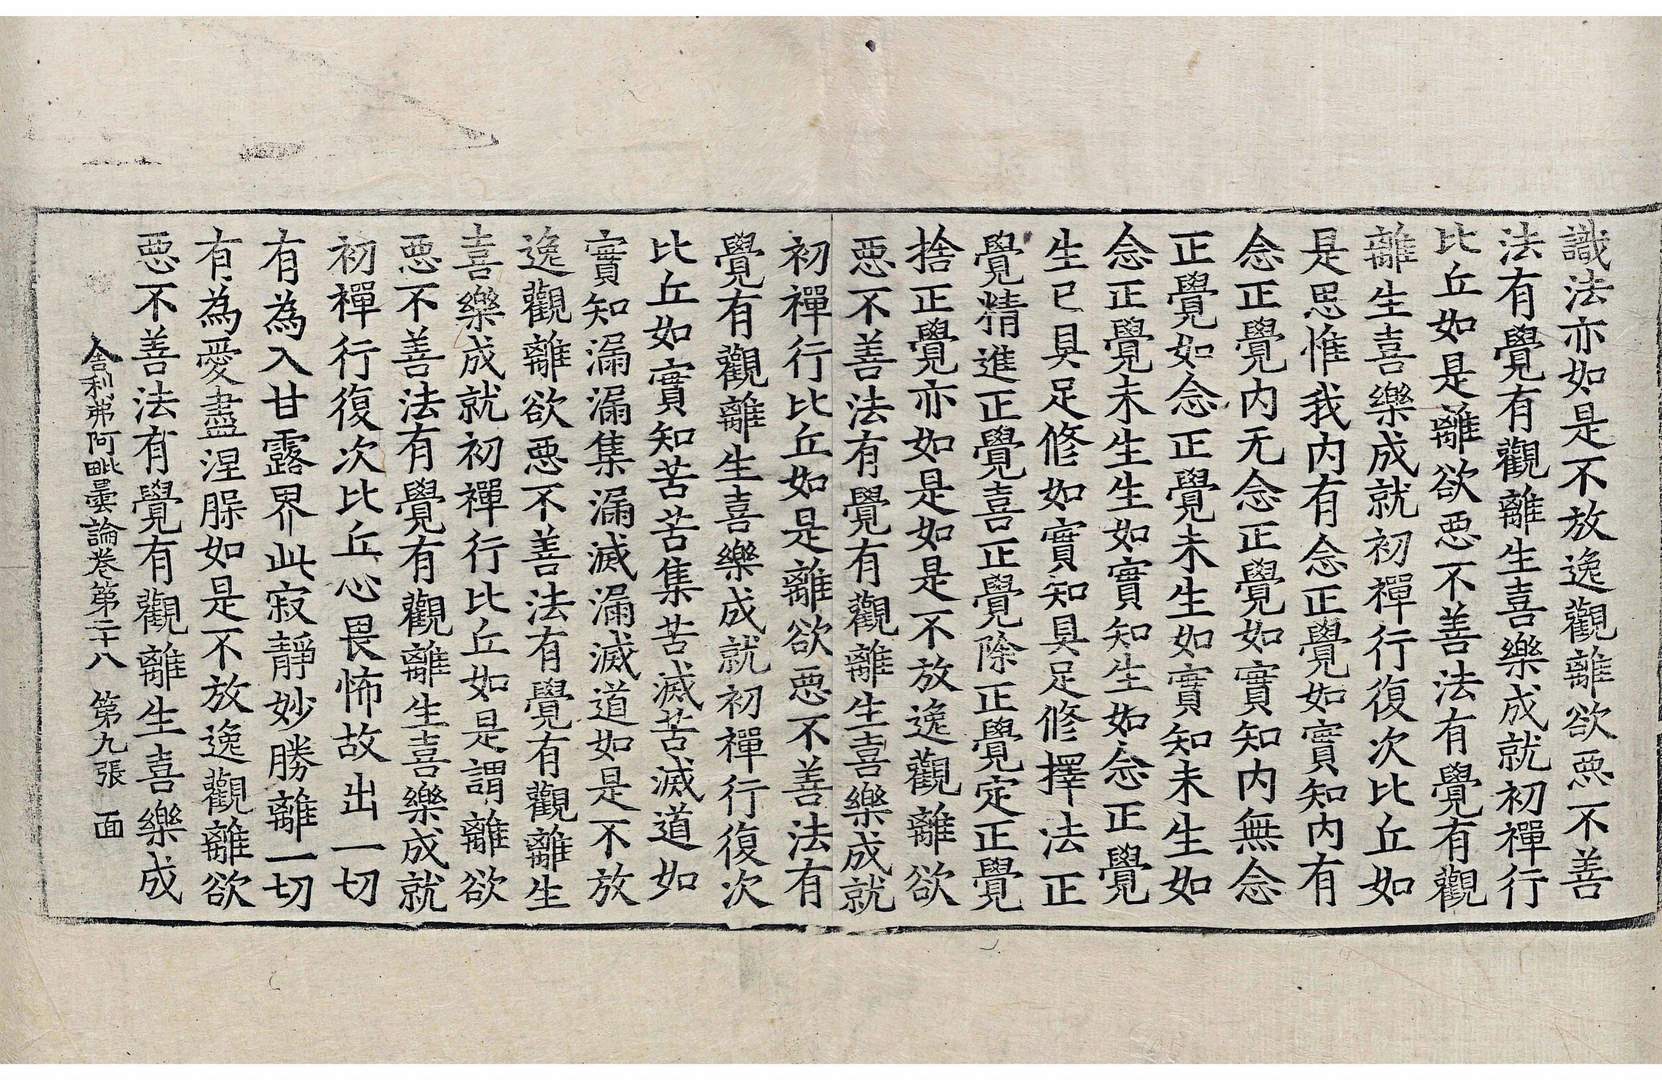 識法亦如是不放逸觀離欲惡不善
法有覺有觀離生喜樂成就初禪行
比丘如是離欲惡不善法有覺有觀
離生喜樂成就初禪行復次比丘如
是思惟我內有念正覺如實知內有
念正覺內无念正覺如實知內無念
正覺如念正覺未生如實知未生如
念正覺未生生如實知生如念正覺
生已具足修如實知具足修擇法正
覺精進正覺喜正覺除正覺定正覺
捨正覺亦如是如是不放逸觀離欲
惡不善法有覺有觀離生喜樂成就
初禪行比丘如是離欲惡不善法有
覺有觀離生喜樂成就初禪行復次
比丘如實知苦苦集苦滅苦滅道如
實知漏漏集漏滅漏滅道如是不放
逸觀離欲惡不善法有覺有觀離生
喜樂成就初禪行比丘如是謂離欲
惡不善法有覺有觀離生喜樂成就
初禪行復次比丘心畏怖故出一切
有為入甘露界此寂靜妙勝離一切
有為愛盡涅槃如是不放逸觀離欲
惡不善法有覺有觀離生喜樂成
舍利弗阿毗曇論卷第二十八 第九張 面